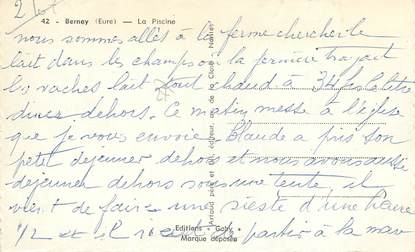 2
42 - Bernay (Eure) — La Piscine
nous sommes allés à la ferme chercher le
lait dans les champs on la première trajait
les vaches lait tout chaud à 34 f le litre
dinez dehors. Ce matin messe à l'église
que je vous envoie Claude a pris son
petit déjeuner dehors et nous avons aussi
déjeuner dehors sous une tente il
vient de faire une sieste d'une heure
1/2 et il vient de partir à la
Artaud père et fils, éditeur, de la Close - Nantes
Editions - Gaby
Marque déposée